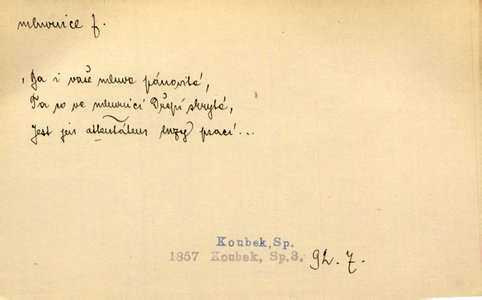 mluvnice f.
„Ba i vaše mluva pánovité,
Ta co ve mluvnici Dřepí skryté,
Jest jen attentátem luzy prací...
Koubek, Sp.
1857 Koubek, Sp.3. 92.7.